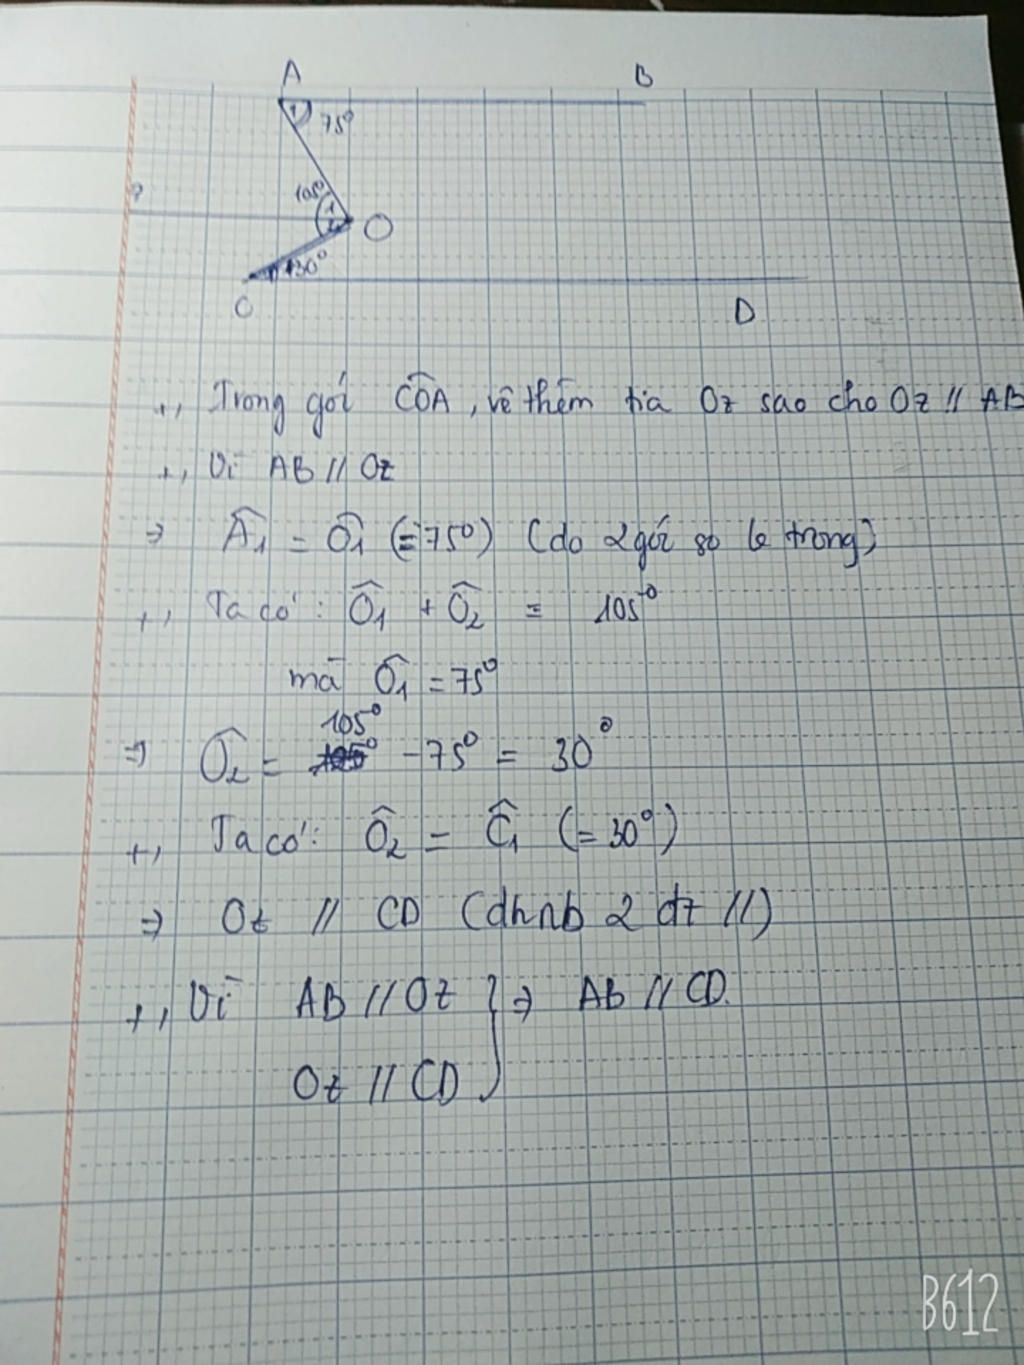 A B
1 75°
105° 1
z O
2
1 30°
C D
+, Trong gói CÔA, vẽ thêm tia Oz sao cho Oz // AB
+, Vì AB // Oz
⇒ Â1 = Ô1 (=75°) (do 2 gói so le trong)
+, Ta có: Ô1 + Ô2 = 105°
mà Ô1 = 75°
105°
⇒ Ô2 = - 75° = 30°
+, Ta có: Ô2 = Ĉ1 (= 30°)
⇒ Oz // CD (dhnb 2 đt //)
+, Vì AB // Oz } ⇒ AB // CD.
Oz // CD
B612